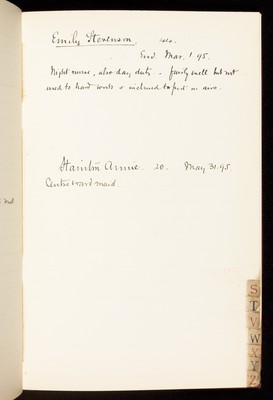 Emily Stevenson
End. Mar. 1 95.
Night nurse, also day duty - fairly well but not
used to hard work & inclined to
Stainton Annie. 20. May 31. 95
Centre ward maid.
S
T
V
W
Y
Z